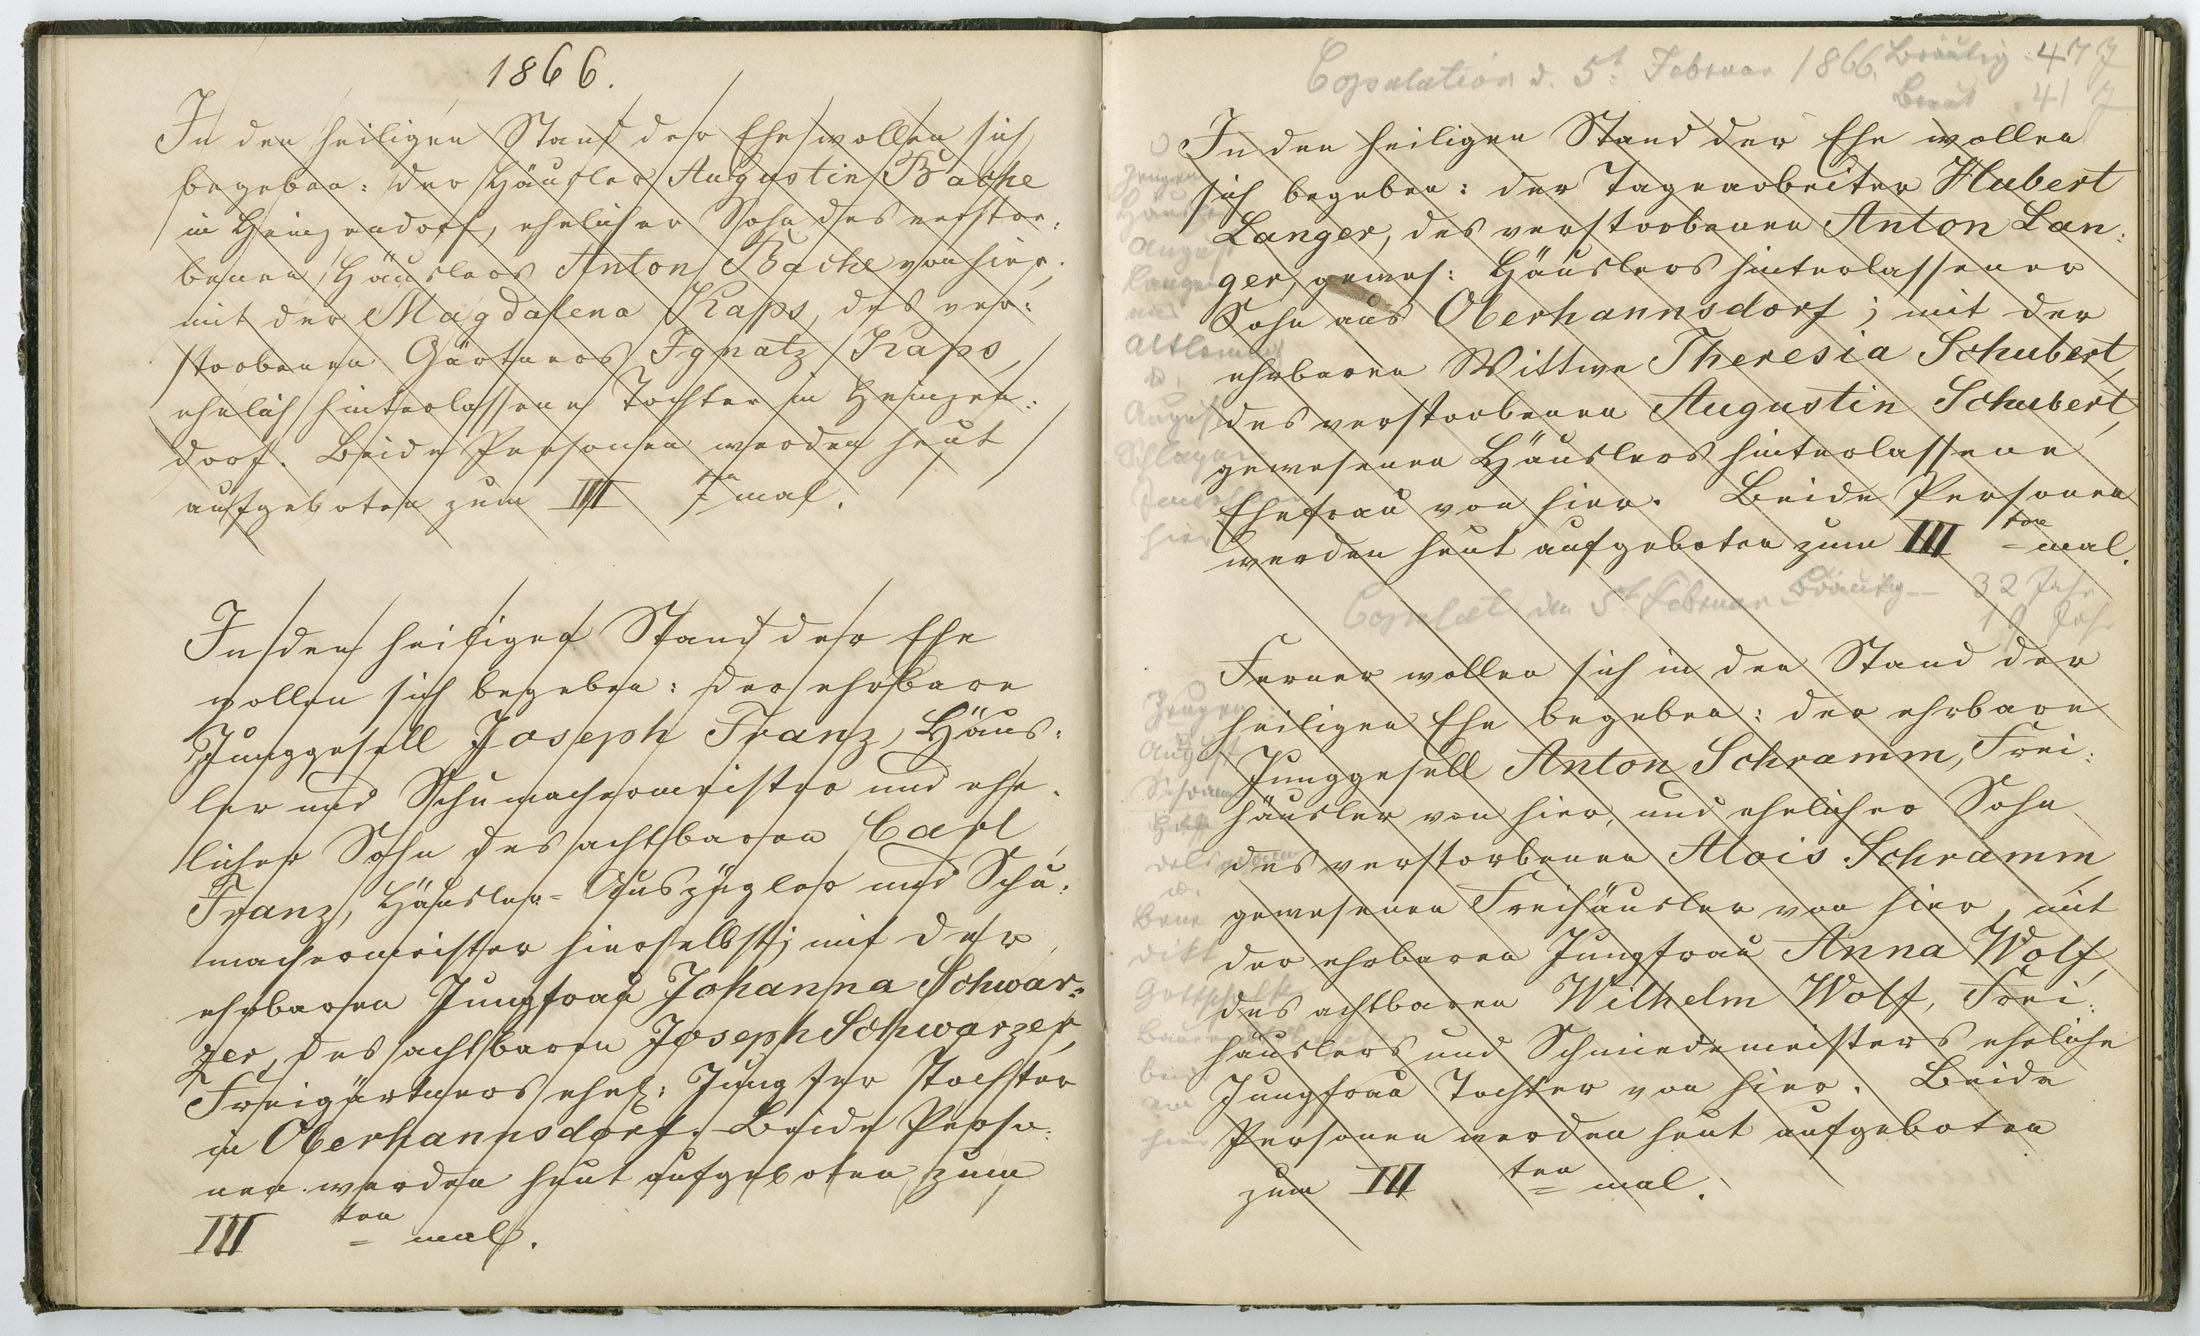 1866.
In den heiligen Stand der Ehe wollen sich
begeben: der Häusler Augustin Bache
in Heinzendorf, ehelicher Sohn des verstor:
benen Häuslers Anton Bache von hier;
mit der Magdalena Kaps, des ver:
storbenen Gärtners Ignatz Kaps,
ehelich hinterlassene Tochter in Heinzen:
dorf. Beide Personen werden heut
aufgeboten zum III ten mal.
In den heiligen Stand der Ehe
wollen sich begeben: der ehrbare
Junggesell Joseph Franz, Häus:
ler und Schumachermeister und ehe:
licher Sohn des achtbaren Carl
Franz, Häusler-Auszügler und Schu:
machermeister hierselbst; mit der
ehrbaren Jungfrau Johanna Schwar:
zer, des achtbaren Joseph Schwarzer,
Freigärtners ehel: Jungfer Tochter
in Oberhannsdorf. Beide Perso:
nen werden heut aufgeboten zum
III ten mal.
Copulation d. 5t. Februar 1866. Bräutig. 47 J
Braut 41 J
In den heiligen Stand der Ehe wollen
sich begeben: der Tagearbeiter Hubert
Langer, des verstorbenen Anton Lan:
ger, gewes: Häuslers hinterlassener
Sohn aus Oberhannsdorf; mit der
ehrbaren Wittwe Theresia Schubert,
des verstorbenen Augustin Schubert,
gewesenen Häuslers hinterlassene
Ehefrau von hier. Beide Personen
werden heut aufgeboten zum III ten mal.
Zeugen
Häusler
August
Langer
und
August
hier
Copulat den 5t Februar Bräutig 32 Jahr
19 Jahr
Ferner wollen sich in den Stand der
heiligen Ehe begeben: der ehrbare
Junggesell Anton Schramm, Frei:
häusler von hier, und ehelicher Sohn
des verstorbenen Alois Schramm,
gewesenen Freihäusler von hier, mit
der ehrbaren Jungfrau Anna Wolf,
des achtbaren Wilhelm Wolf, Frei:
häuslers und Schmiedemeisters eheliche
Jungfrau Tochter von hier. Beide
Personen werden heut aufgeboten
zum III ten mal.
Zeugen:
August
Schramm
u.
Bene
dikt
Gottschalk
Bauer
beide
von
hier